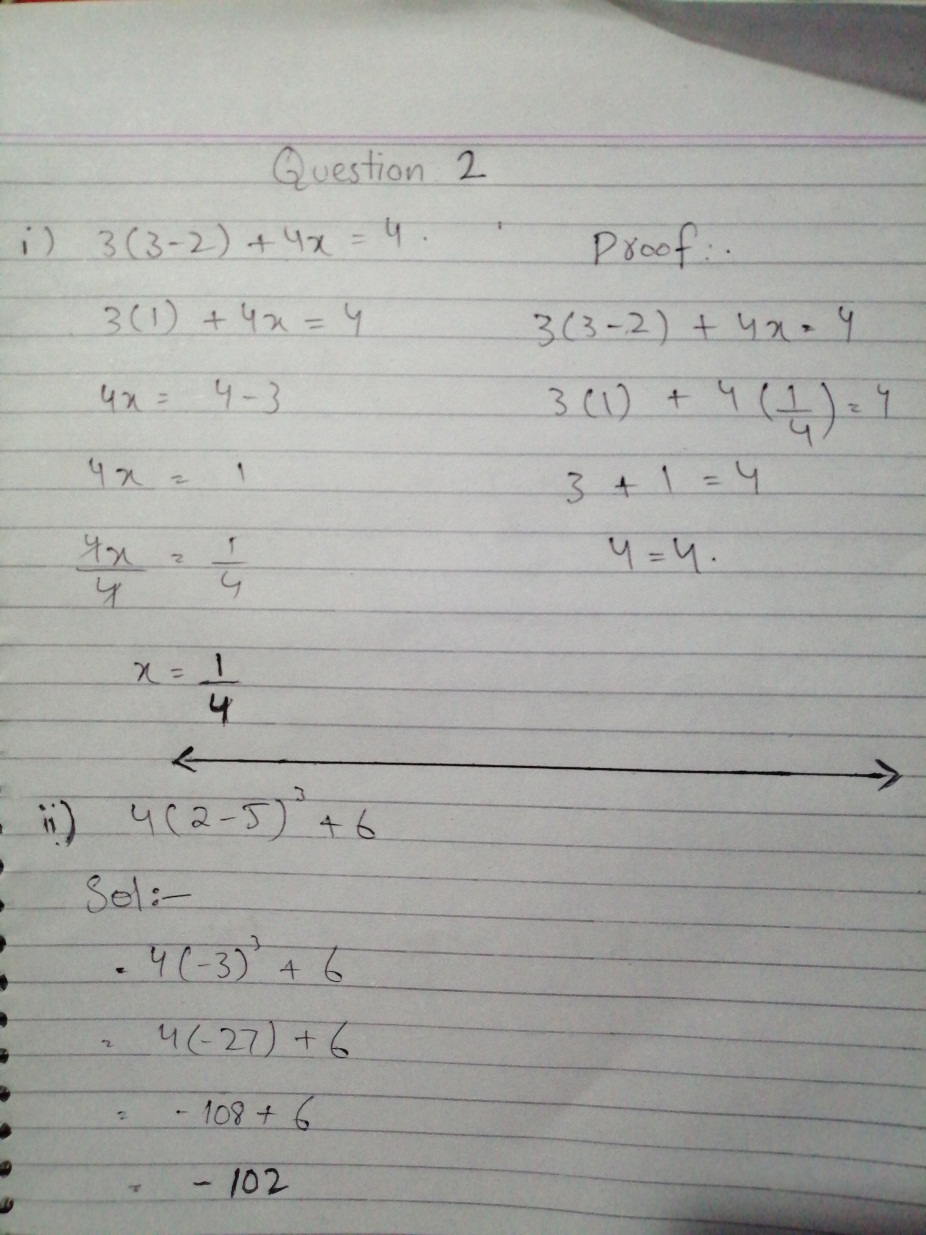 Question 2
i) 3(3-2) + 4x = 4.
3(1) + 4x = 4
4x = 4-3
4x = 1
4x/4 = 1/4
x = 1/4
Proof:.
3(3-2) + 4x = 4
3(1) + 4(1/4) = 4
3 + 1 = 4
4 = 4.
ii) 4(2-5)³ + 6
Sol:-
= 4(-3)³ + 6
= 4(-27) + 6
= -108 + 6
= -102